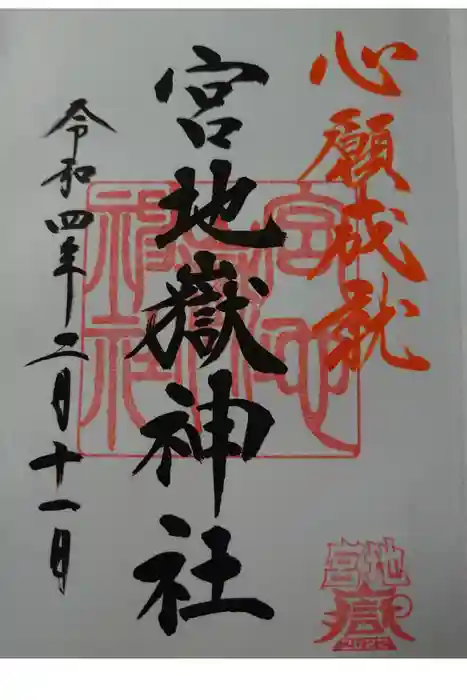 心願成就
宮地嶽神社
令和四年二月十一日
宮地嶽神社
宮地
嶽
2022